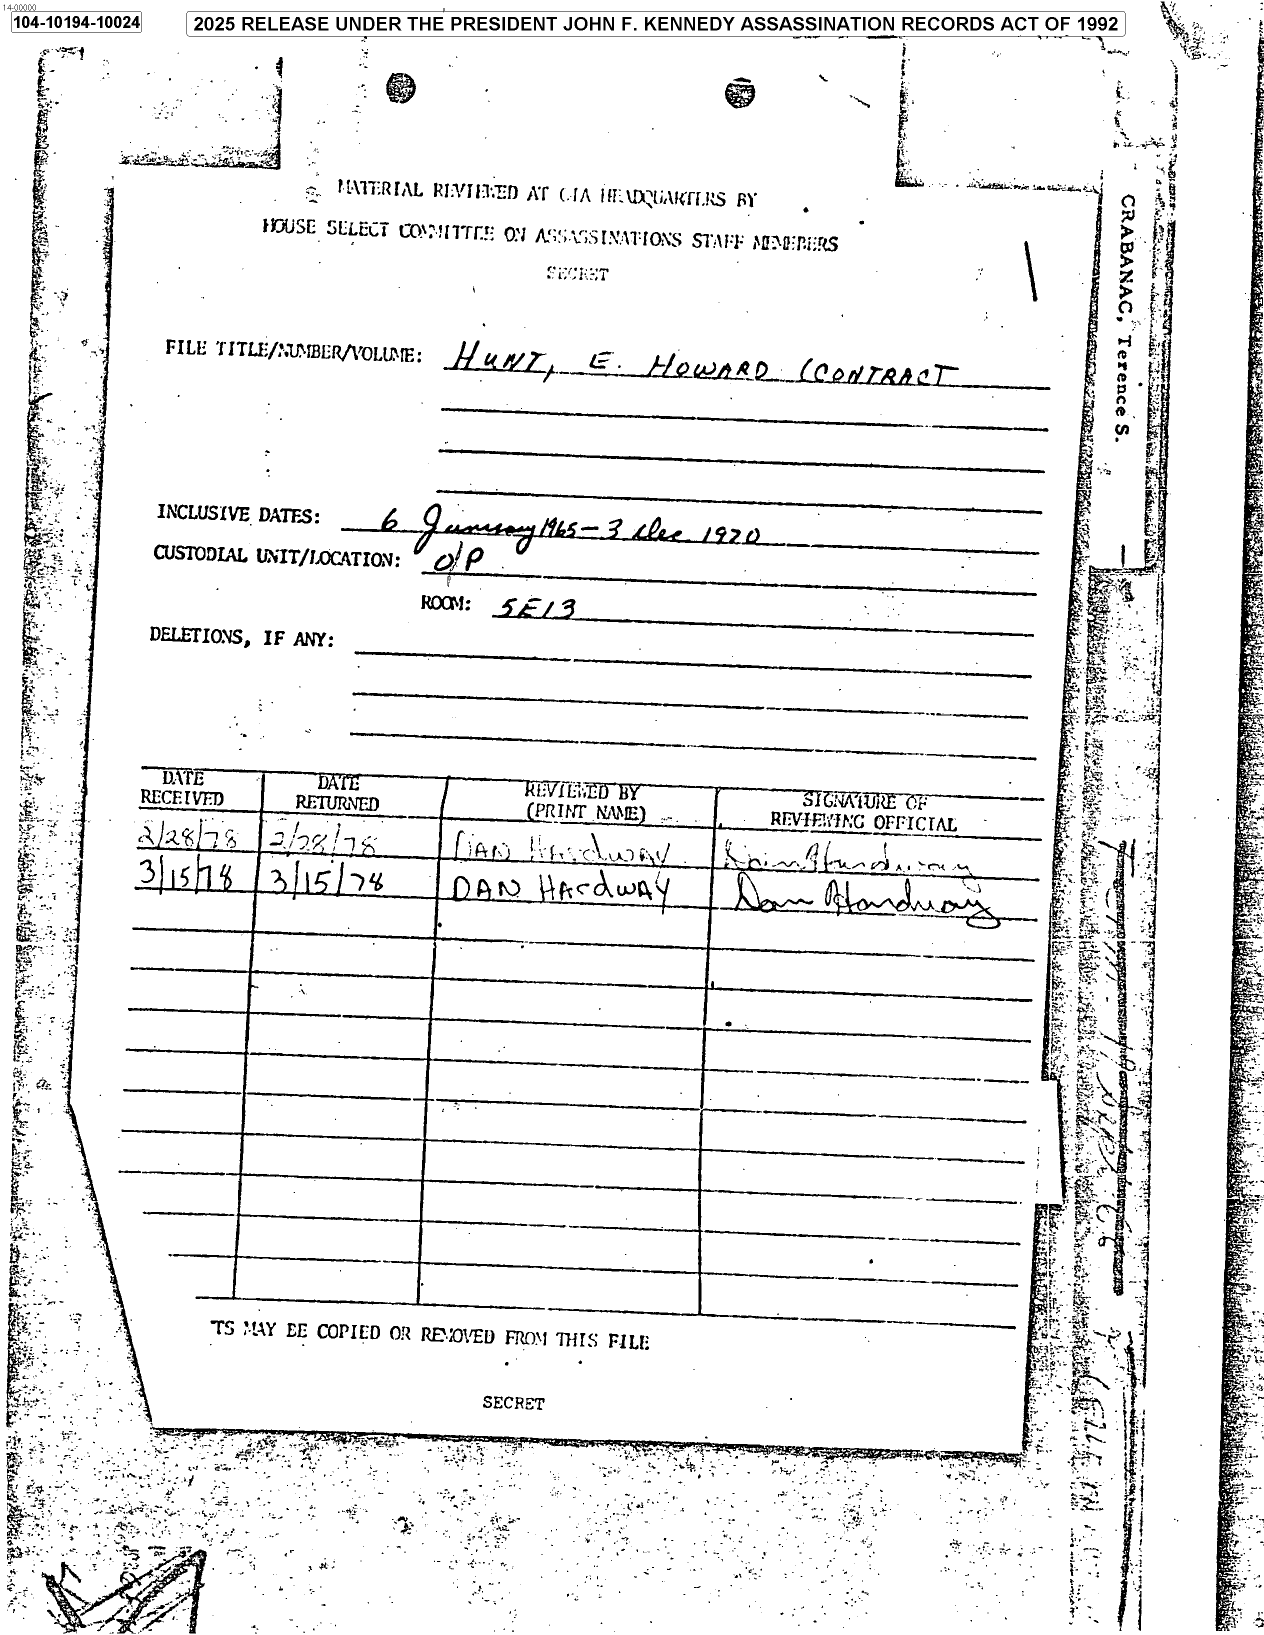 14-00000
104-10194-10024
2025 RELEASE UNDER THE PRESIDENT JOHN F. KENNEDY ASSASSINATION RECORDS ACT OF 1992
MATERIAL REVIEWED AT CIA HEADQUARTERS BY
HOUSE SELECT COMMITTEE ON ASSASSINATIONS STAFF MEMBERS
SECRET
FILE TITLE/NUMBER/VOLUME: HUNT, E. HOWARD (CONTRACT
INCLUSIVE DATES: 6 January 1965 – 3 Dec 1970
CUSTODIAL UNIT/LOCATION: O/P
ROOM: 5E13
DELETIONS, IF ANY:
DATE RECEIVED DATE RETURNED REVIEWED BY (PRINT NAME) SIGNATURE OF REVIEWING OFFICIAL
2/28/78 2/28/78 DAN HardwAY Dan Hardway
3/15/78 3/15/78 DAN HardwAY Dan Hardway
TS MAY BE COPIED OR REMOVED FROM THIS FILE
SECRET
CRABANAC, Terence S.